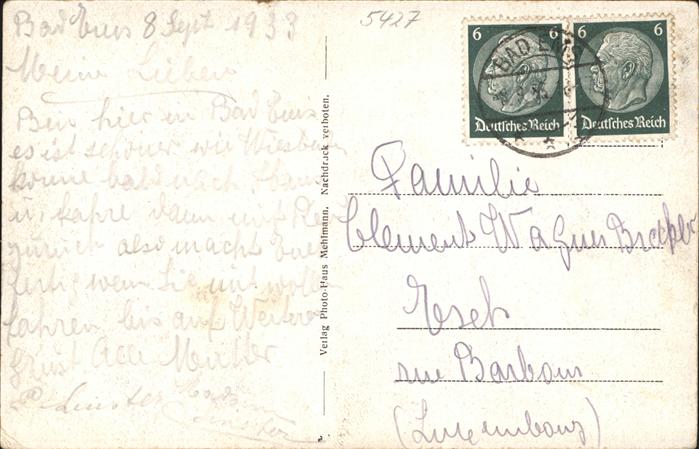 Bad Ems 8 Sept 1933
Meine Lieben
Bin hier in Bad Ems
es ist schöner wie Wiesbaden
komme bald nach
u, fahre dann mit
zurück also macht Euch
fertig wenn Sie mit wollt
fahren bis auf Weiteres
Grust Alle Mutter
P. Linster
5427
6 6
Deutsches Reich Deutsches Reich
BAD EMS
Verlag Photo-Haus Mehlmann. Nachdruck verboten.
Familie
Clement Wagner
Esch
rue Barbour
(Luxembourg)